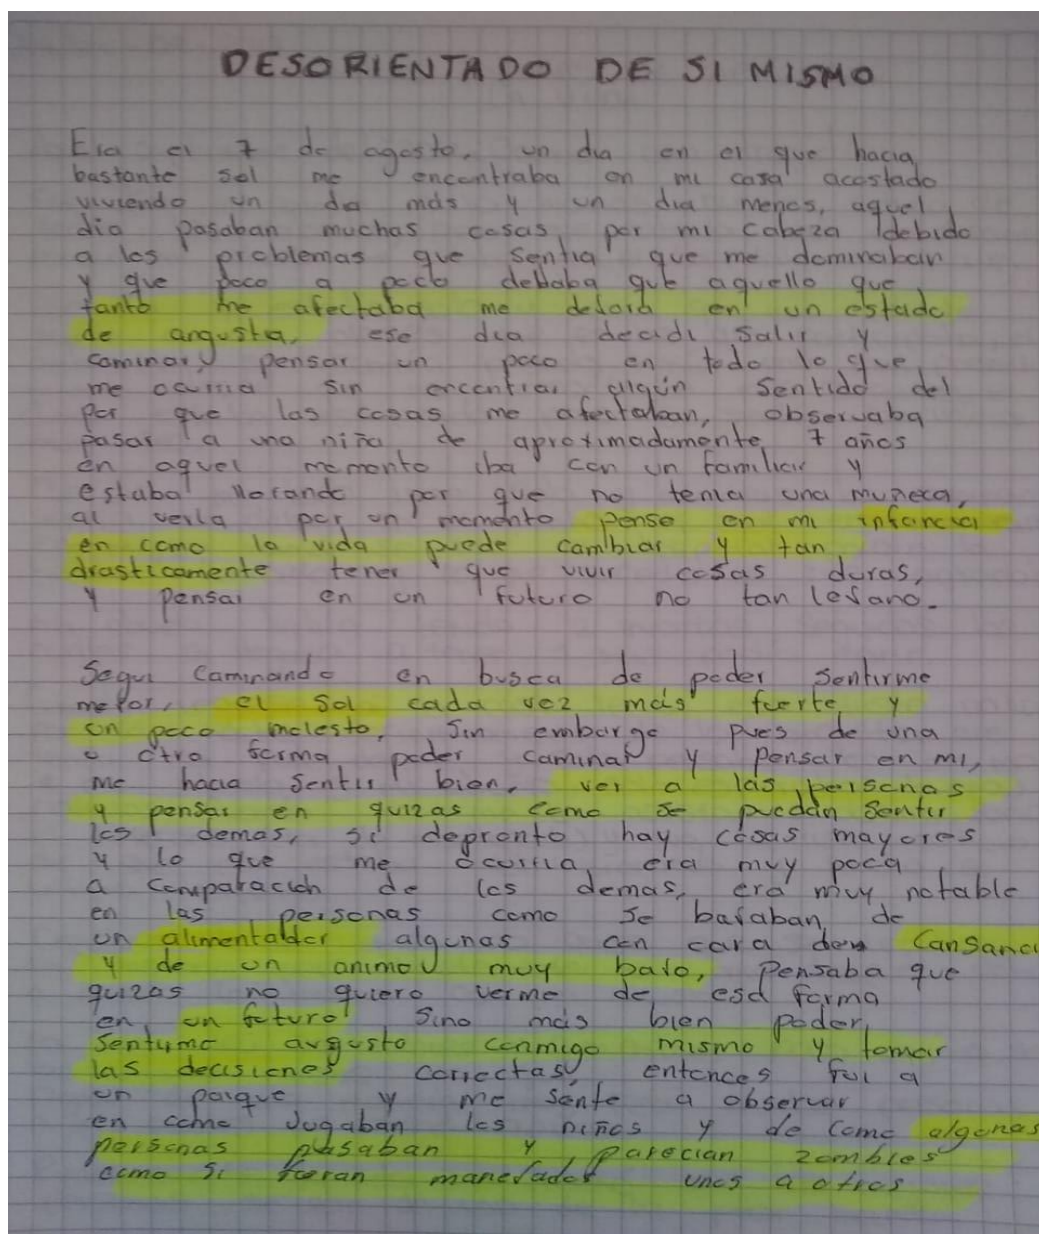 DESORIENTADO DE SI MISMO
Era el 7 de agosto, un dia en el que hacia,
bastante sol me encontraba en mi casa acostado
viviendo un dia más y un dia menos, aquel
dia pasaban muchas cosas por mi cabeza debido
a los problemas que sentia que me dominaban
y que poco a poco dejaba que aquello que
tanto me afectaba me dejara en un estado
de angustia, ese dia decidi salir y
caminar, pensar un poco en todo lo que
me ocurria sin encontrar algún sentido del
por que las cosas me afectaban, observaba
pasar a una niña de aproximadamente 7 años
en aquel momento iba con un familiar y
estaba llorando por que no tenia una muñeca,
al verla por un momento pense en mi infancia
en como la vida puede cambiar y tan
drasticamente tener que vivir cosas duras,
y pensar en un futuro no tan lejano.
Segui caminando en busca de poder sentirme
mejor, el sol cada vez más fuerte y
un poco molesto, sin embargo pues de una
o otra forma poder caminar y pensar en mi,
me hacia sentir bien, ver a las personas
y pensar en quizas como se puedan sentir
los demas, si depronto hay cosas mayores
y lo que me ocurria era muy poca
a comparación de los demas, era muy notable
en las personas como se bajaban de
un alimentador algunas con cara de cansanci
y de un animo muy bajo, pensaba que
quizas no quiero verme de esa forma
en un futuro sino más bien poder
sentirme augusto conmigo mismo y tomar
las decisiones correctas, entonces fui a
un parque y me sente a observar
en como jugaban los niños y de como algunas
personas pasaban y parecian zombies
como si fueran manejados unos a otros